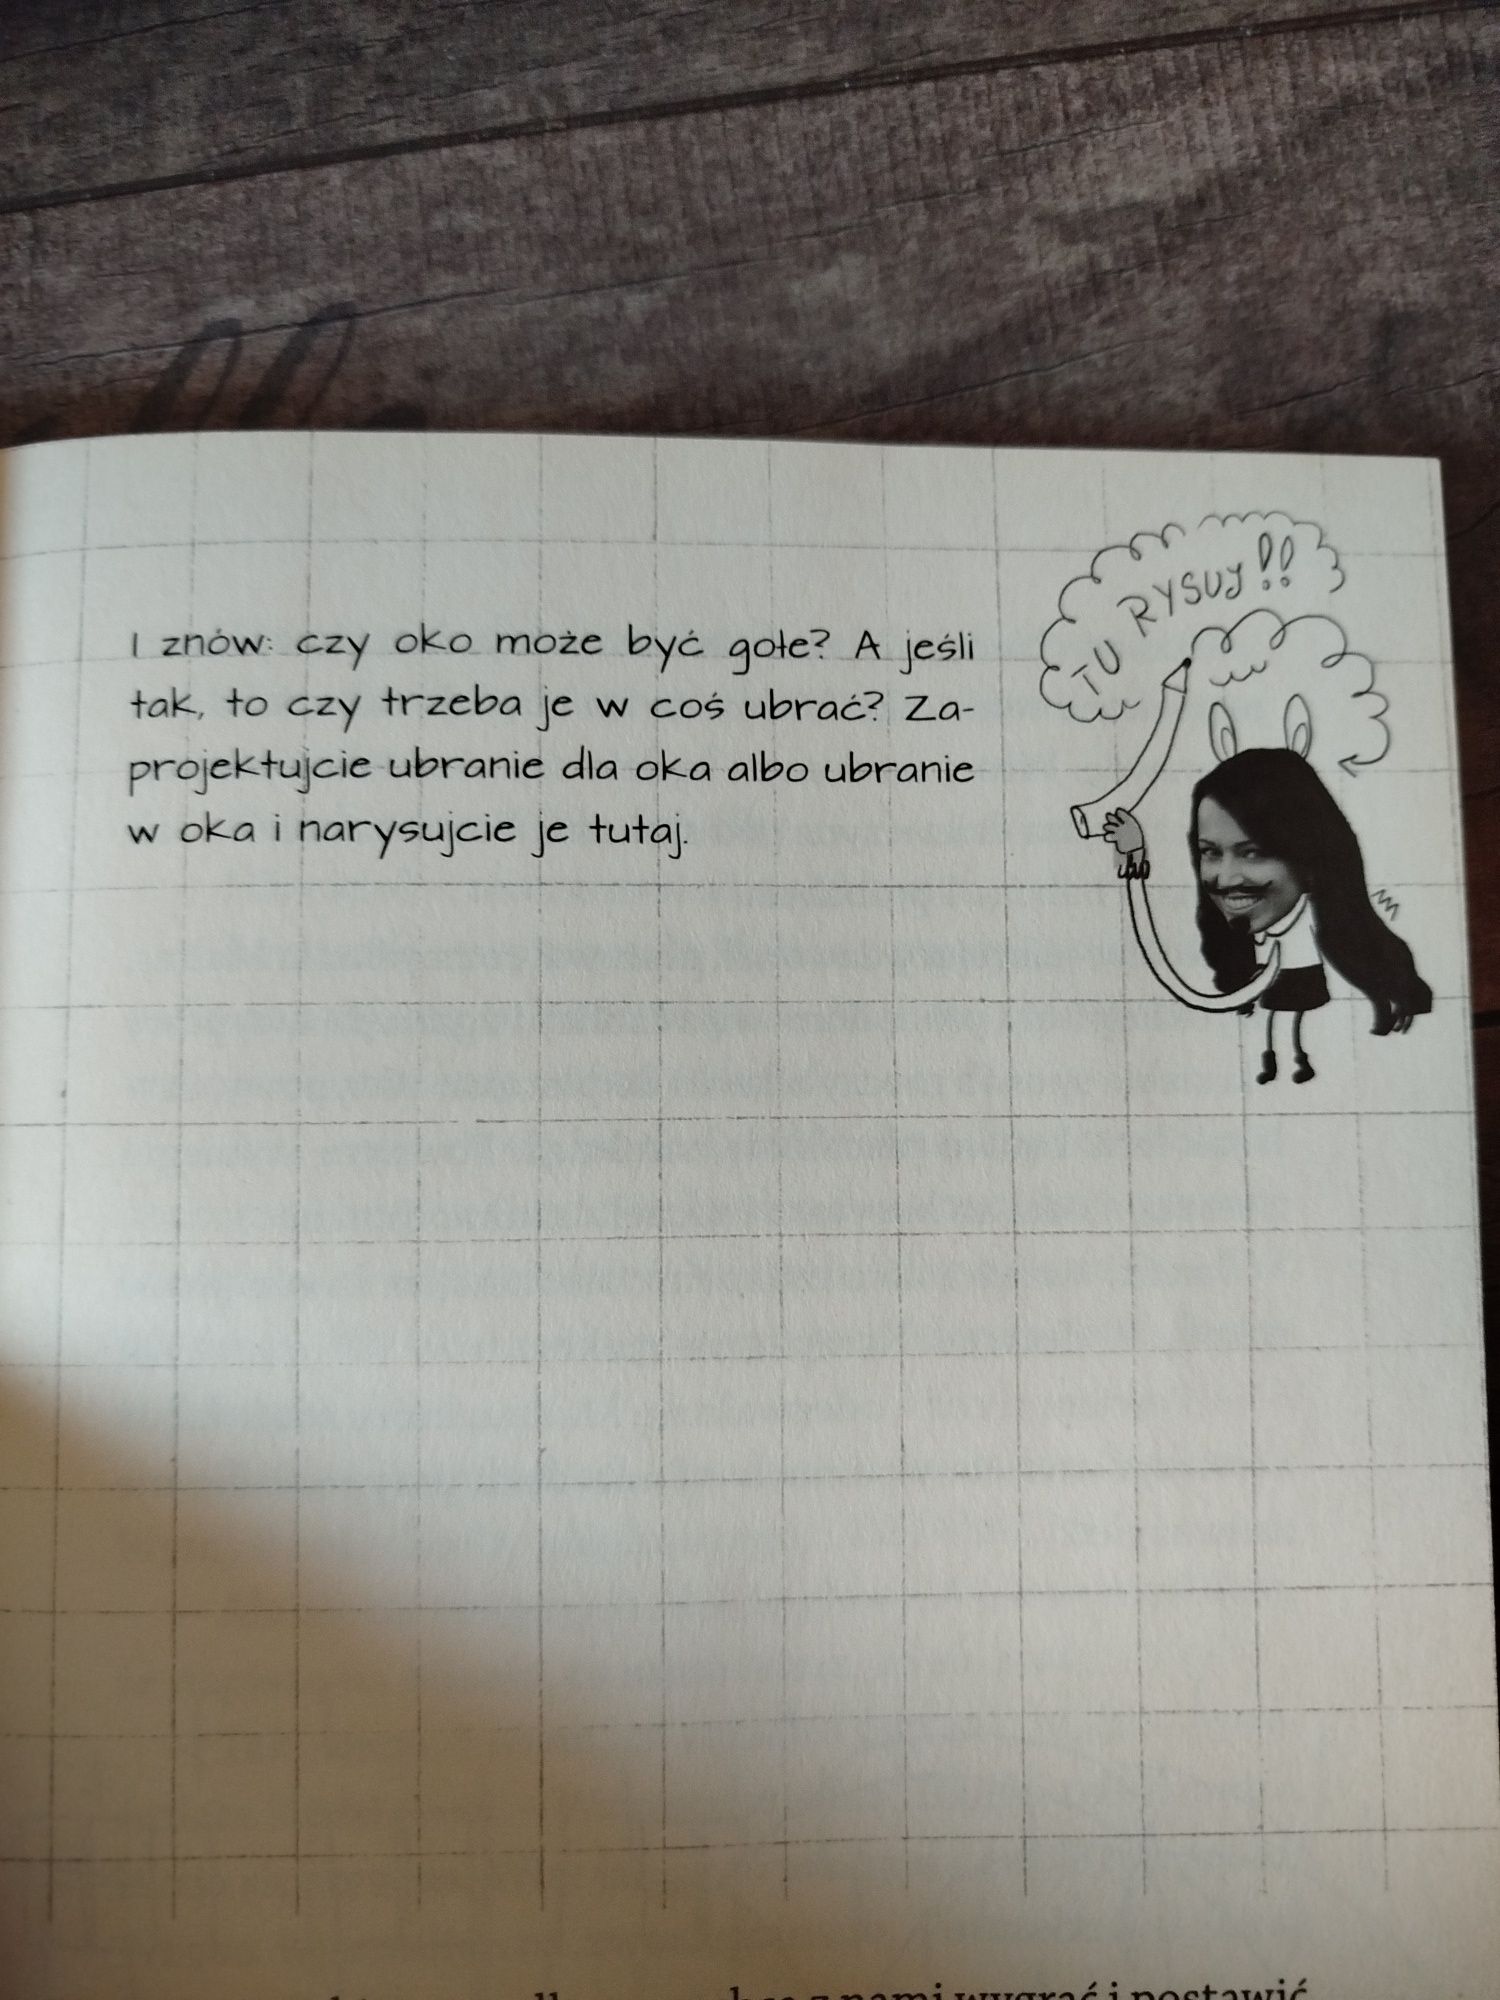 TU RYSUJ!!
I znów: czy oko może być gołe? A jeśli
tak, to czy trzeba je w coś ubrać? Za-
projektujcie ubranie dla oka albo ubranie
w oka i narysujcie je tutaj.
z nami wygrać i postawić